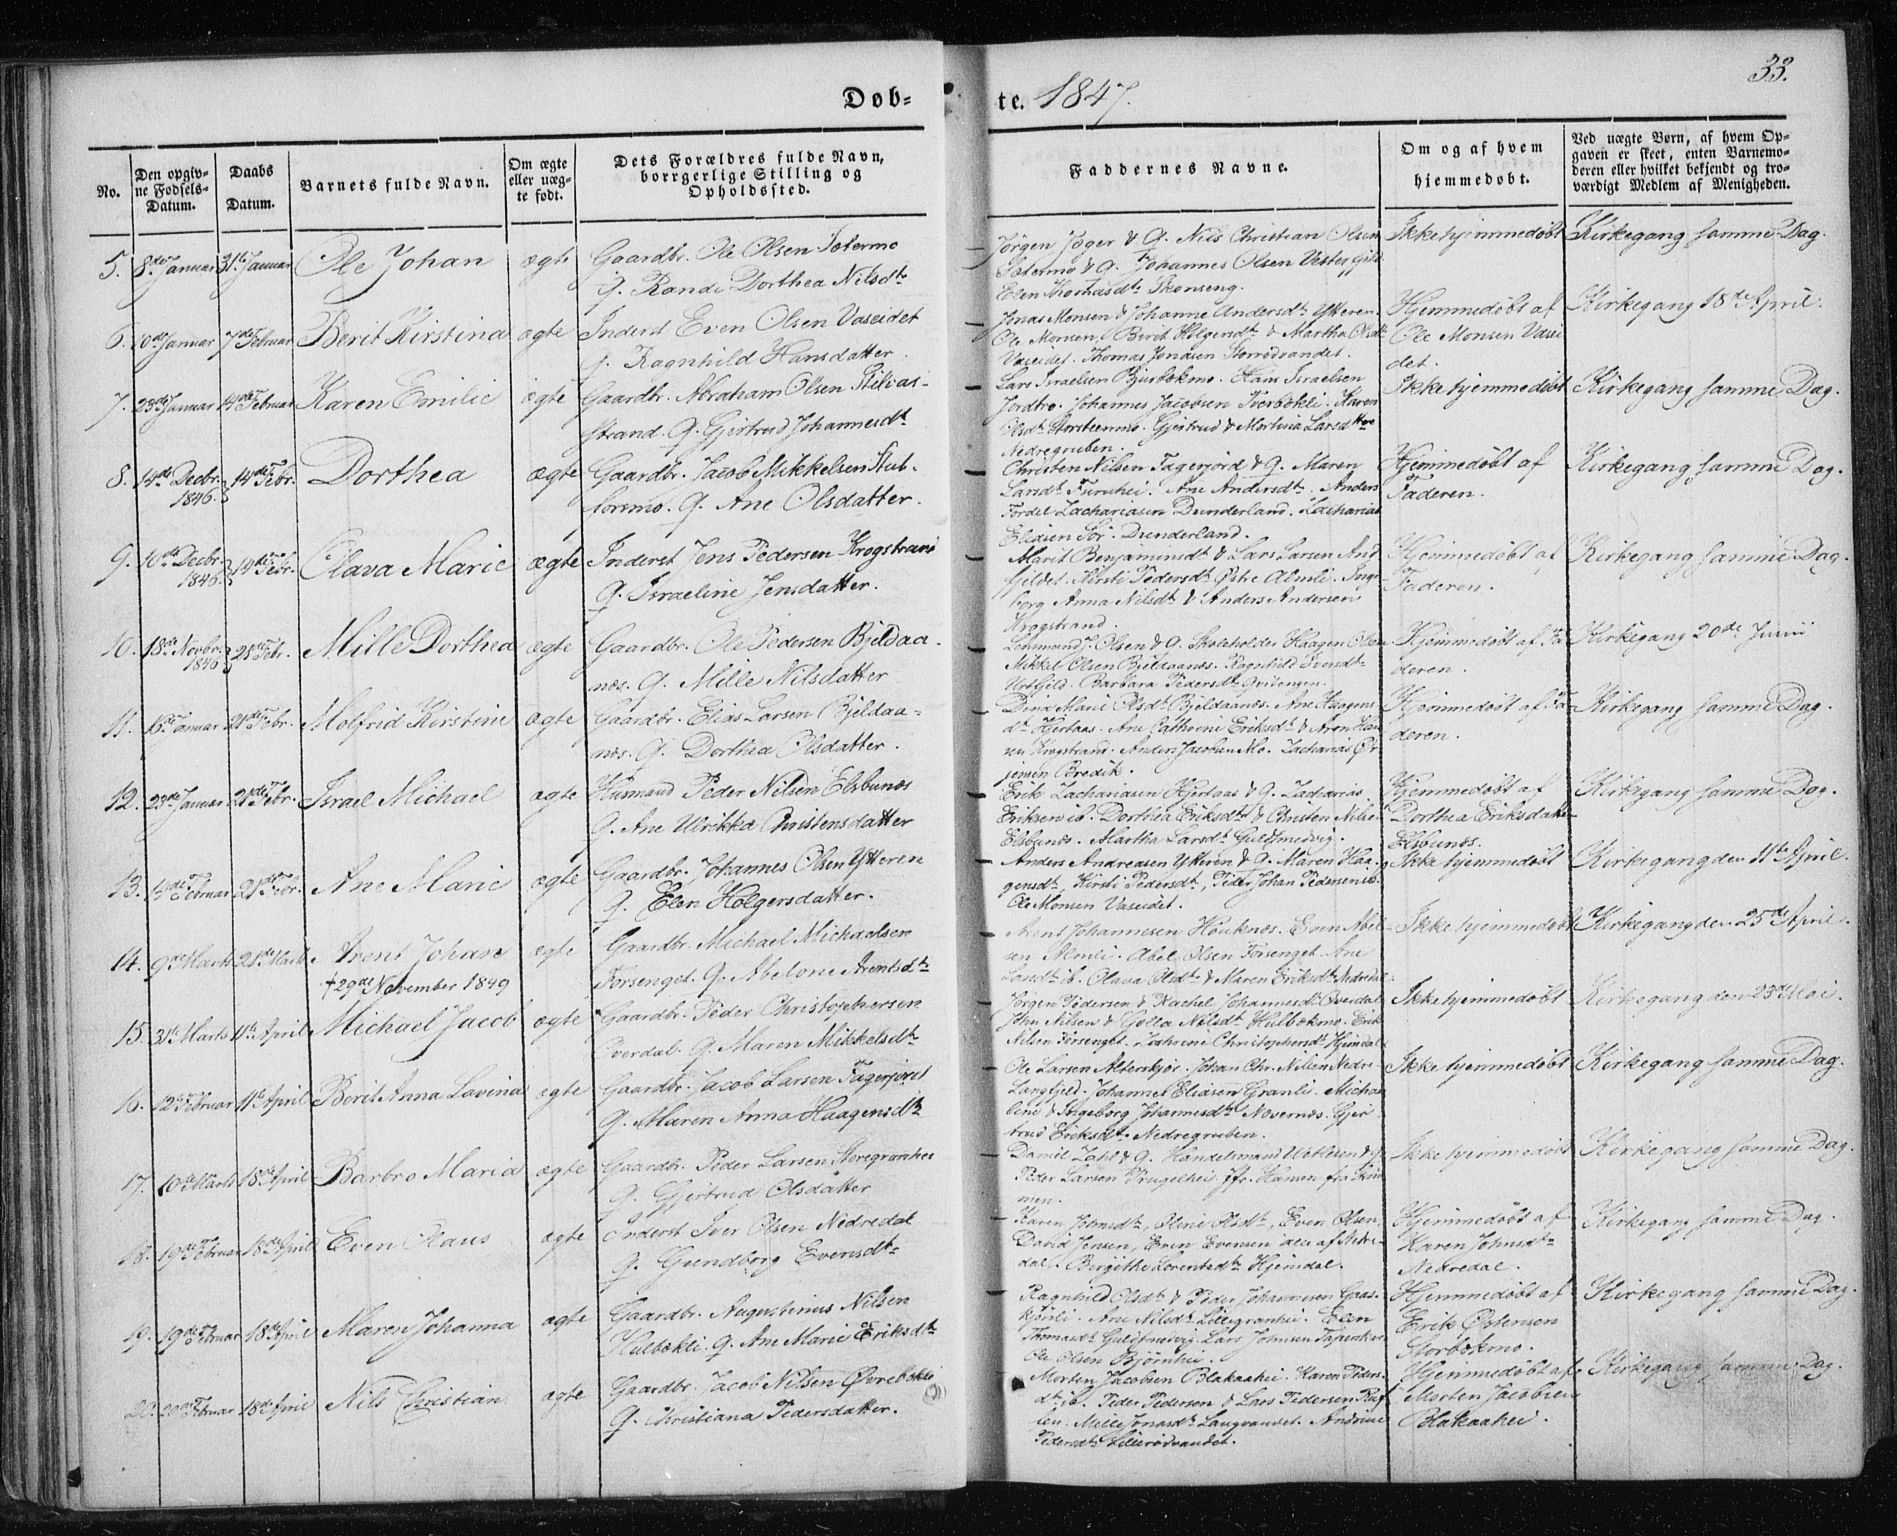 Døb-
te. 1847.
33.
No.
Den opgiv-
ne Fødsels-
Datum.
Daabs
Datum.
Barnets fulde Navn.
Om ægte
eller uæg-
te født.
Dets Forældres fulde Navn,
borrgerlige Stilling og
Opholdssted.
Faddernes Navne.
Om og af hvem
hjemmedøbt.
Ved uægte Børn, af hvem Op-
gaven er skeet, enten Barnemo-
deren eller hvilket bekjendt og tro-
værdigt Medlem af Menigheden.
5. 8de Januar 31te Januar Ole Johan ægte Gaardbr. Ole Olsen Sætermo
G. Randi Dorthea Nilsdt.
Jørgen Jøger & G. Nils Christian Olsen
Sætermo & G. Johannes Olsen
Elen Thomasdt. Skonseng.
Ikke hjemmedøbt Kirkegang samme Dag.
6. Januar 7de Februar Berit Kirstina ægte Inderst Even Olsen Vaseidet
G. Ragnhild Hansdatter.
Jonas Monsen & Johanne Andersdt. Ytteren.
Ole Monsen, Berit Holgersdt. & Martha Olsdt.
Vaseidet. Thomas Jonasen Storrødvandet.
Hjemmedøbt af
Ole Monsen Vasei
det.
Kirkegang 18de April.
7. 23de Januar 14de Februar Karen Emilie ægte Gaardbr. Abraham Olsen
strand. G. Gjertrud Johannesdt.
Lars Israelsen Bjurbækmo. Hans Israelsen
Jordbro. Johannes Jacobsen Tverbækli. Karen
Olsdt. Storsteenmo. Gjertrud & Martina Larsdttre
Nedregruben.
Ikke hjemmedøbt Kirkegang samme Dag.
8. 14de Decbr. 1846 14de Febr. Dorthea ægte Gaardbr. Jacob Mikkelsen Stub-
foremo. G. Ane Olsdatter.
Christen Nilsen Fagerjord & G. Maren
Larsdt. Furuhei. Ane Andersdt. Anders
Fordel Zachariasen Dunderland. Zacharias
Eliasen Sør-Dunderland.
Hjemmedøbt af
Faderen.
Kirkegang samme Dag.
9. 10de Decbr. 1846 14de Febr. Olava Marie ægte Inderst Jens Pedersen Krogstrand
G. Israeline Jensdatter.
Marit Benjaminsdt. & Lars Larsen And
fjeldet. Kirsti Pedersdt. Østre Almli. Inge-
borg Anna Nilsdt. & Anders Andersen
Krogstrand.
Hjemmedøbt af
Faderen.
Kirkegang samme Dag.
10. 13de Novbr. 1846 21de Febr. Mille Dorthea ægte Gaardbr. Ole Pedersen Bjeldaa-
næs. G. Mille Nilsdatter
Lehnsmand J. Olsen & G. Skoleholder Haagen Olsen
Mikkel Olsen Bjeldaanæs. Ragnhild Svensdt.
Urtfjeld. Barbara Pedersdt. Hvitengen.
Hjemmedøbt af Fa
deren.
Kirkegang 20de Junii
11. 16de Januar 21de Febr. Molfrid Kirstine ægte Gaardbr. Elias Larsen Bjeldaa-
næs. G. Dorthea Olsdatter.
Dina Marie Olsdt. Bjeldaanæs. Ane Haagens
dt. Hjertaas. Ane Cathrine Eriksdt. & Aron Han
sen Krogstrand. Anders Jacobsen Mo. Zacharias Ør
jensen Bredik.
Hjemmedøbt af Fa
deren.
Kirkegang samme Dag.
12. 23de Januar 21de Febr. Israel Michael ægte Husmand Peder Nilsen Elsbunæs
G. Ane Ulrikka Christensdatter
Erik Zachariasen Hjertaas & G. Zacharias
Eriksen ib. Dorthea Eriksdt. & Christen Nilsen
Elsbunæs. Martha Larsdt. Guldsmedvig.
Hjemmedøbt af
Dorthea Eriksdatter
Elsbunæs.
Kirkegang samme Dag.
13. 14de Februar 21de Febr. Ane Marie ægte Gaardbr. Johannes Olsen Ytteren
G. Elen Holgersdatter.
Anders Andreasen Ytteren & G. Maren Haa-
gensdt. Kirsti Pedersdt., Peder Johan Pedersen ib.
Ole Monsen Vaseidet.
Ikke hjemmedøbt Kirkegang den 11te April.
14. 9de Marts 21de Marts Arent Johan
†29de November 1849
ægte Gaardbr. Michael Michaelsen
Forsenget. G. Abelone Arentsdt.
Arent Johannesen Houknæs. Even Abel-
sen Almli. Abel Olsen Forsenget. Ane
ib. Olava Olsdt. & Maren Eriksdt. Nedredal
Ikke hjemmedøbt Kirkegang den 25de April.
15. 31te Marts 11te April Michael Jacob ægte Gaardbr. Peder Christophersen
Overdal. G. Maren Mikkelsdt.
Jørgen Pedersen & Rachel Johannesdt. Overdal
John Nilsen & Golla Nilsdt. Hulbækmo. Erik
Nilsen Forsenget. Cathrine Christophersdt. Hjemdal
Ikke hjemmedøbt Kirkegang den 23de Mai.
16. 12te Februar 11te April Berit Anna Lovina ægte Gaardbr. Jacob Larsen Fagerjord
G. Maren Anna Haagensdt.
Ole Larsen Alterskjør. Johan Chr. Nilsen Nedre-
Langfjeld. Johannes Eliasen Granli. Micha
line & Ingeborg Johannesdt. Nævernæs. Gjer
trud Eriksdt. Nedregruben.
Ikke hjemmedøbt Kirkegang samme Dag.
17. 10de Marts 18de April Barbro Maria ægte Gaardbr. Peder Larsen Storegranhei
G. Gjertrud Olsdatter
Daniel Zahl & G. Handelsmand
Peder Larsen Krugelhei. Jfr. Hansen fra
men.
Ikke hjemmedøbt Kirkegang samme Dag.
18. 19de Februar 18de April Even Claus ægte Inderst Iver Olsen Nedredal
G. Gundborg Evensdt.
Karen Johnsdt., Oline Olsdt., Even Olsen,
David Jensen, Even Evensen alle af Nedre-
dal. Birgithe Lorentsdt. Hjemdal.
Hjemmedøbt af
Karen Johnsdt.
Nedredal.
Kirkegang samme Dag.
19. 19de Februar 18de April Maren Johanna ægte Gaardbr. Augustinus Nilsen
Hulbækli. G. Ane Marie Eriksdt.
Ragnhild Olsdt. & Peder Johannesen Gaas-
kjønli. Ane Nilsdt. Lillegranhei. Elen
Thomasdt. Guldsmedvig. Lars Johnsen
Ole Olsen Bjørnhei.
Hjemmedøbt af
Erik Østensen
Storbækmo.
Kirkegang samme Dag.
20. 20de Februar 18de April Nils Christian ægte Gaardbr. Jacob Nilsen Øvrebækli
G. Christiana Pedersdatter.
Morten Jacobsen Blakaahei. Karen Peders-
dt. ib. Peder Pedersen & Lars Pedersen
Mille Jonasdt. Langvandet. Andrine
Pedersdt. Lillerødvandet.
Hjemmedøbt af
Morten Jacobsen
Blakaahei.
Kirkegang samme Dag.